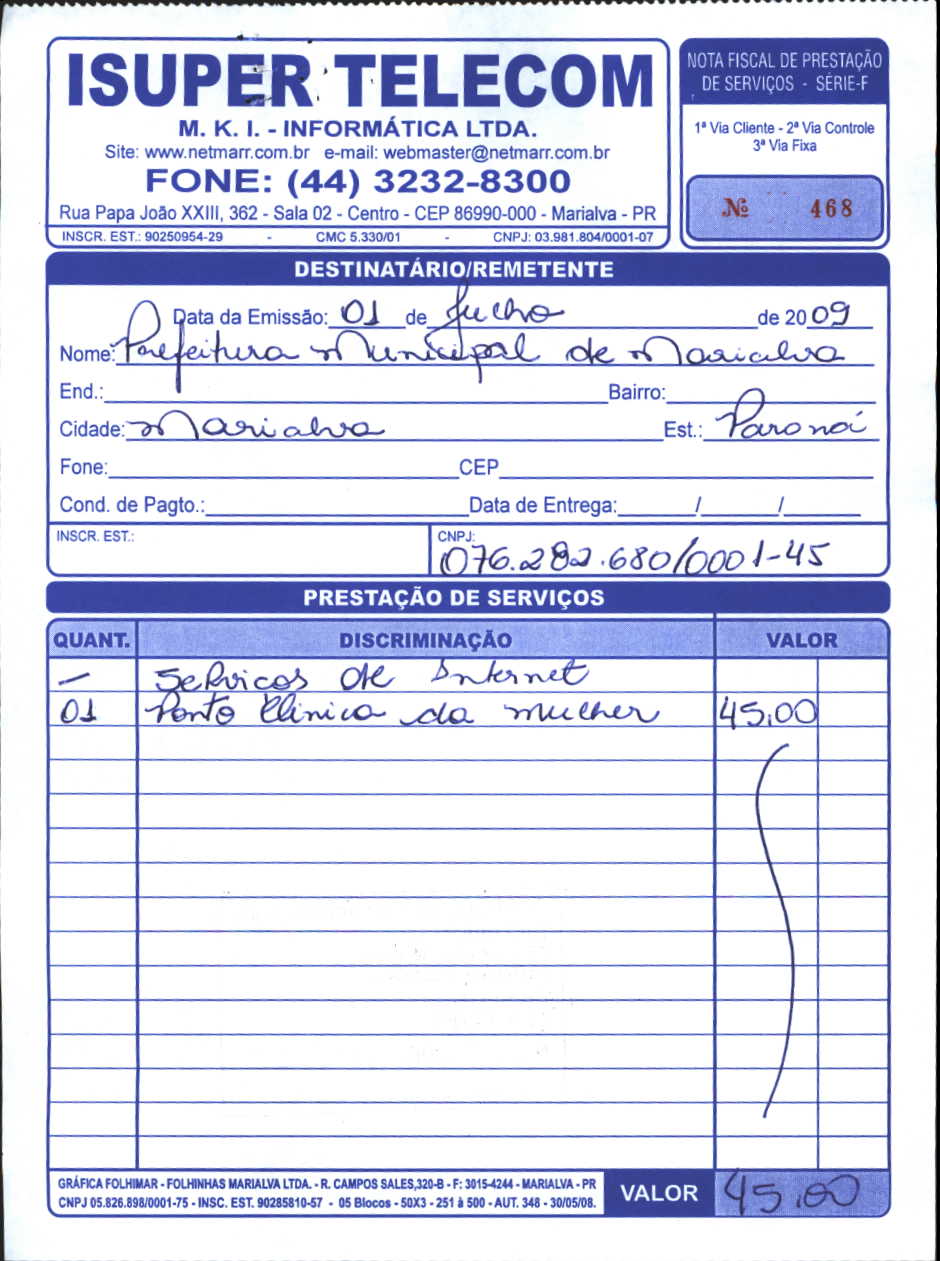 ISUPER TELECOM
M. K. I. - INFORMÁTICA LTDA.
Site: www.netmarr.com.br e-mail: webmaster@netmarr.com.br
FONE: (44) 3232-8300
Rua Papa João XXIII, 362 - Sala 02 - Centro - CEP 86990-000 - Marialva - PR
INSCR. EST.: 90250954-29 - CMC 5.330/01 - CNPJ: 03.981.804/0001-07
NOTA FISCAL DE PRESTAÇÃO
DE SERVIÇOS - SÉRIE-F
1ª Via Cliente - 2ª Via Controle
3ª Via Fixa
Nº 468
DESTINATÁRIO/REMETENTE
Data da Emissão: 01 de Julho de 2009
Nome: Prefeitura Municipal de Marialva
End.: Bairro:
Cidade: Marialva Est.: Paraná
Fone: CEP
Cond. de Pagto.: Data de Entrega: / /
INSCR. EST.: CNPJ: 076.282.680/0001-45
PRESTAÇÃO DE SERVIÇOS
QUANT. DISCRIMINAÇÃO VALOR
- Servicos de Internet
01 Ponto Clinica da mulher 45,00
GRÁFICA FOLHIMAR - FOLHINHAS MARIALVA LTDA. - R. CAMPOS SALES,320-B - F: 3015-4244 - MARIALVA - PR
CNPJ 05.826.898/0001-75 - INSC. EST. 90285810-57 - 05 Blocos - 50X3 - 251 à 500 - AUT. 348 - 30/05/08.
VALOR 45,00